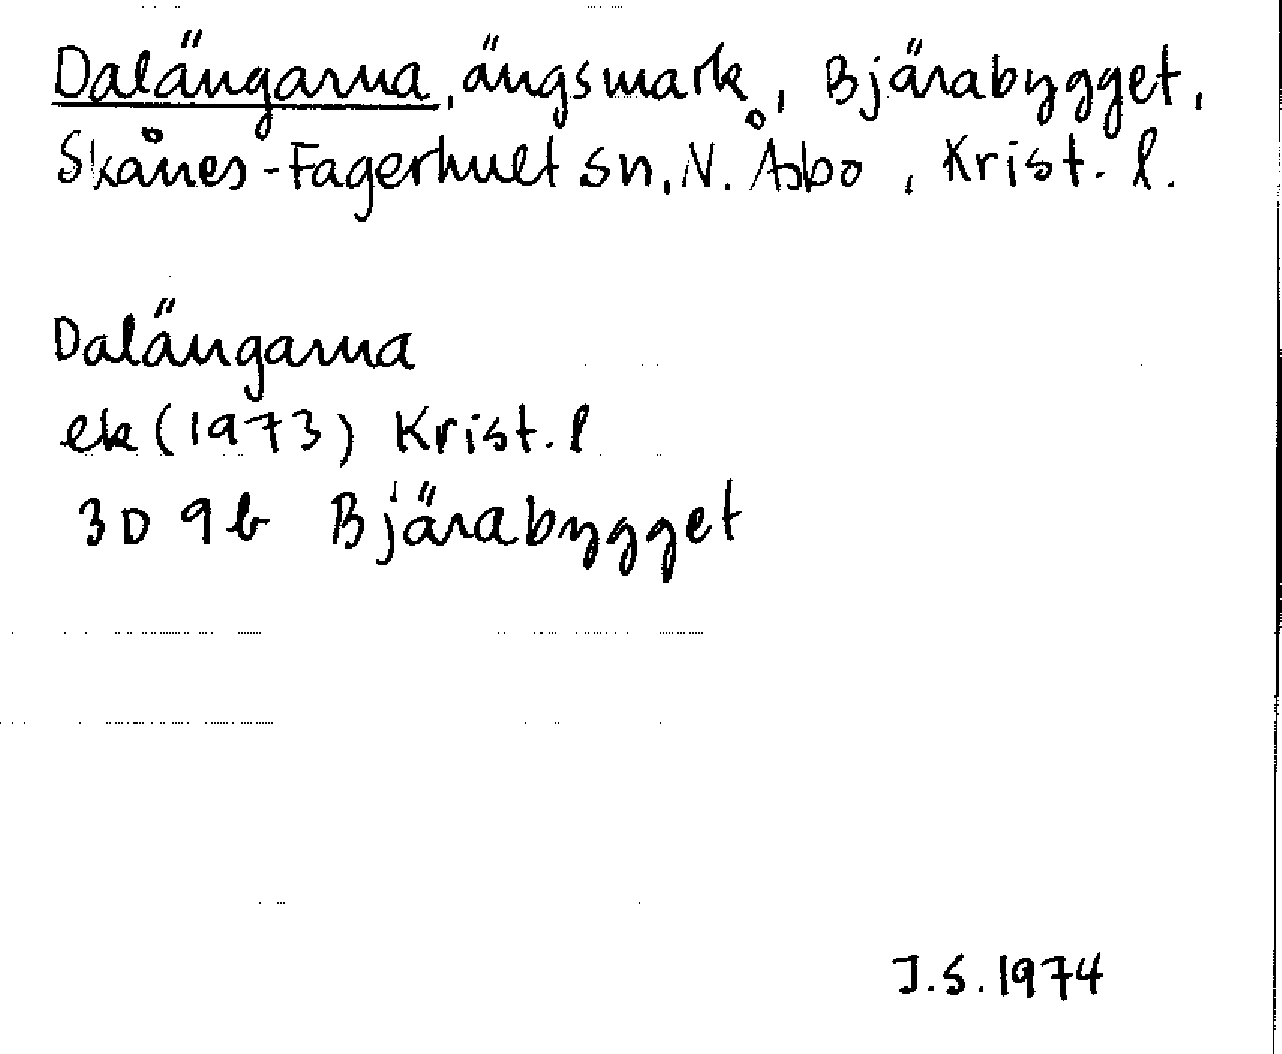 Dalängarna, ängsmark, Bjärabygget,
Skånes-Fagerhult sn, N. Åsbo, Krist. l.
Dalängarna
ek (1973) Krist. l
3D 9b Bjärabygget
J.S. 1974